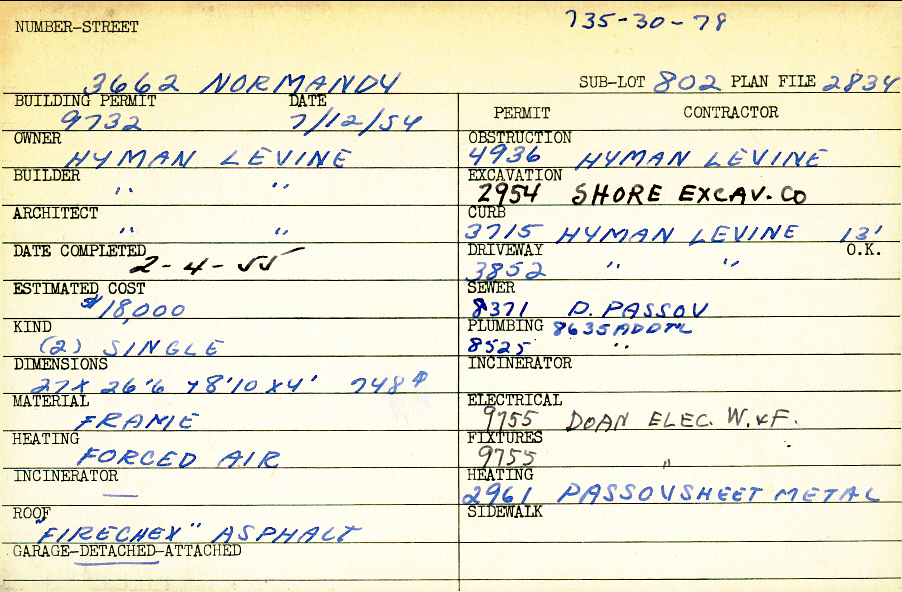 735-30-78
NUMBER-STREET
3662 NORMANDY
SUB-LOT 802 PLAN FILE 2834
BUILDING PERMIT DATE
9732 7/12/54
OWNER
HYMAN LEVINE
BUILDER
" "
ARCHITECT
" "
DATE COMPLETED
2-4-55
ESTIMATED COST
$18,000
KIND
(2) SINGLE
DIMENSIONS
27 x 26'6 + 8'10 x 4' 748#
MATERIAL
FRAME
HEATING
FORCED AIR
INCINERATOR
—
ROOF
"FIRECHEX" ASPHALT
GARAGE-DETACHED-ATTACHED
PERMIT CONTRACTOR
OBSTRUCTION
4936 HYMAN LEVINE
EXCAVATION
2954 SHORE EXCAV. CO
CURB
3715 HYMAN LEVINE 13'
DRIVEWAY O.K.
3852 " "
SEWER
8371 P. PASSOV
PLUMBING 8635 ADDTL
8525 "
INCINERATOR
ELECTRICAL
9755 DOAN ELEC. W. & F.
FIXTURES
9755 "
HEATING
2961 PASSOV SHEET METAL
SIDEWALK